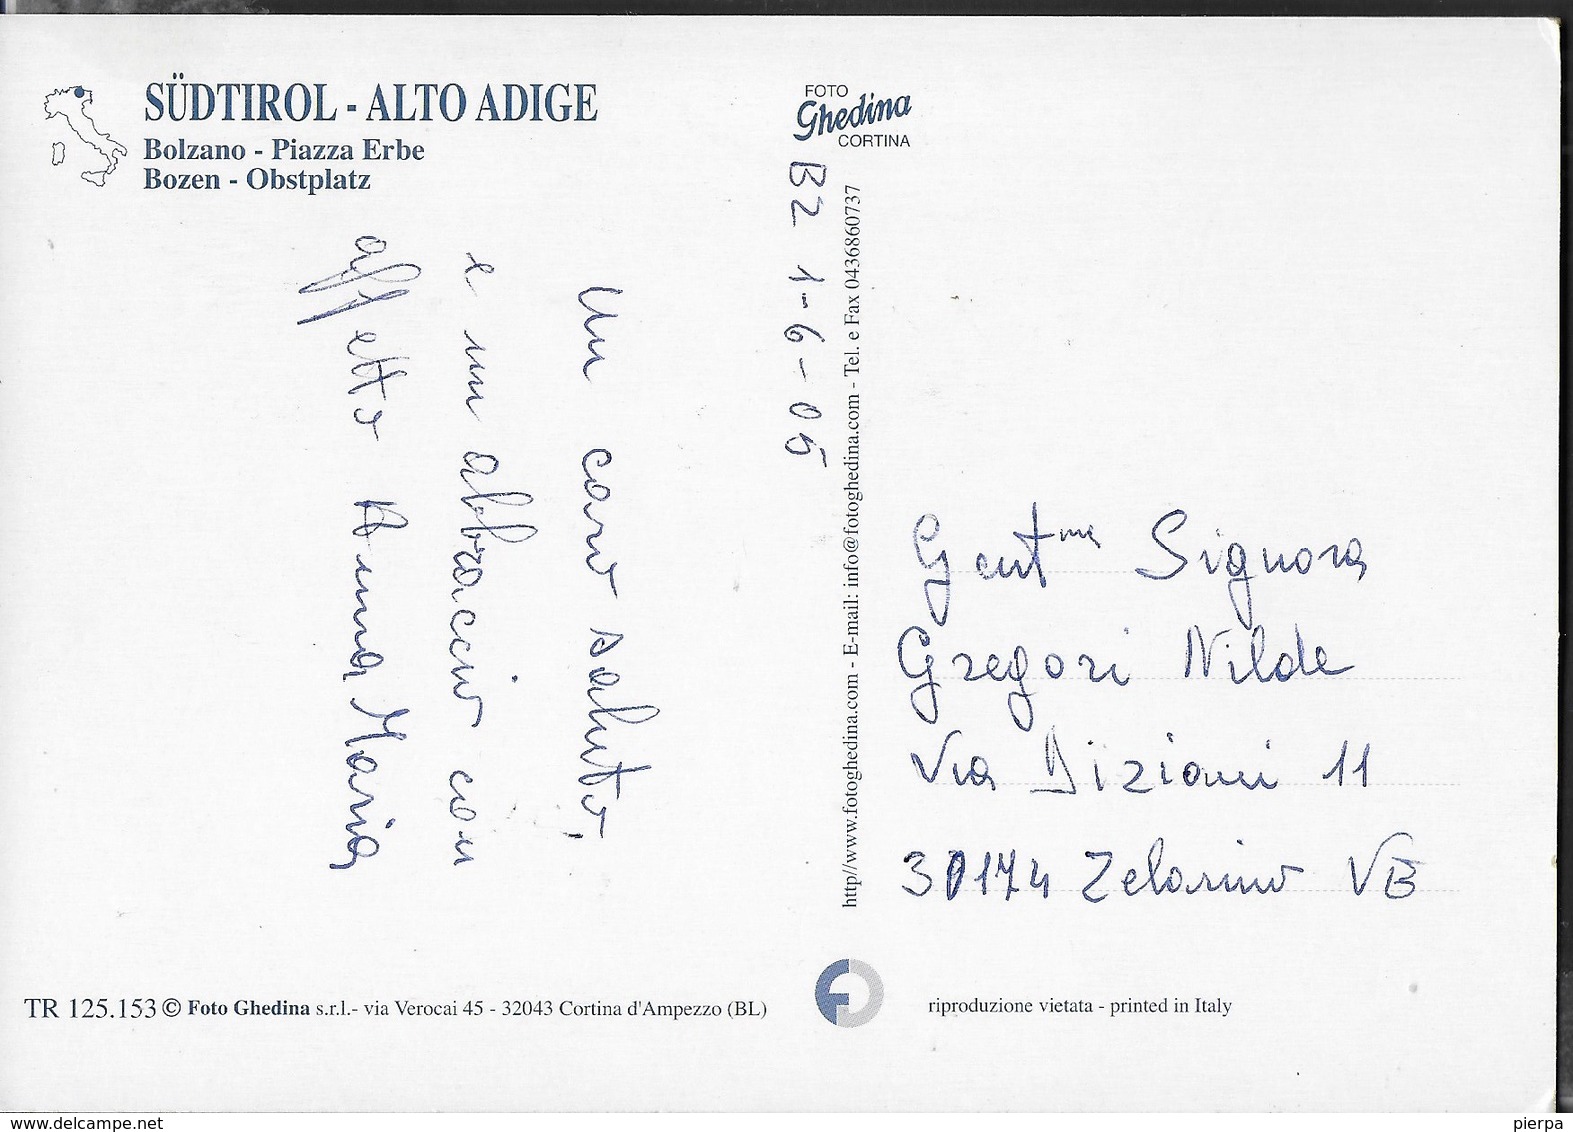 SÜDTIROL - ALTO ADIGE
Bolzano - Piazza Erbe
Bozen - Obstplatz
FOTO
Ghedina
CORTINA
BZ 1-6-05
Un caro saluto,
e un abbraccio con
affetto Anna Maria
http//www.fotoghedina.com - E-mail: info@fotoghedina.com - Tel. e Fax 0436860737
Gent.ma Signora
Gregori Nilde
Via Dizioni 11
30174 Zelarino VE
TR 125.153 © Foto Ghedina s.r.l.- via Verocai 45 - 32043 Cortina d'Ampezzo (BL)
riproduzione vietata - printed in Italy
www.delcampe.net
pierpa